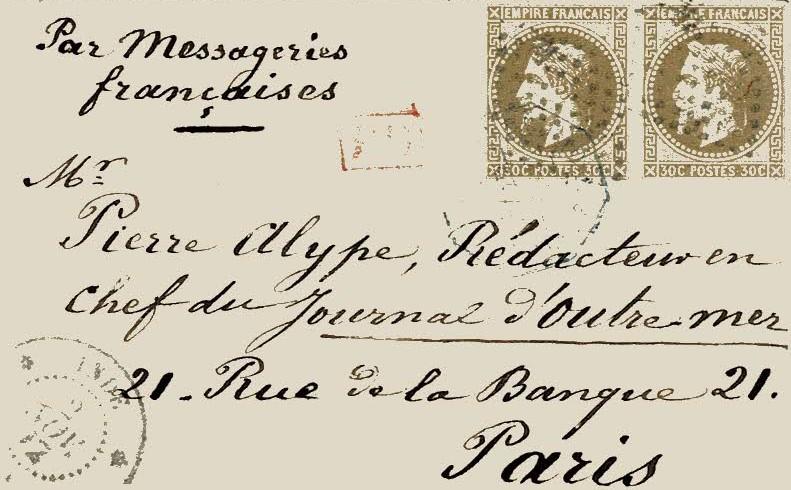 Par Messageries
françaises
EMPIRE FRANÇAIS
30C POSTES 30C
EMPIRE FRANÇAIS
30C POSTES 30C
Mr
Pierre Alype, Rédacteur en
chef du Journal d'Outre-mer
21 - Rue de la Banque 21.
Paris